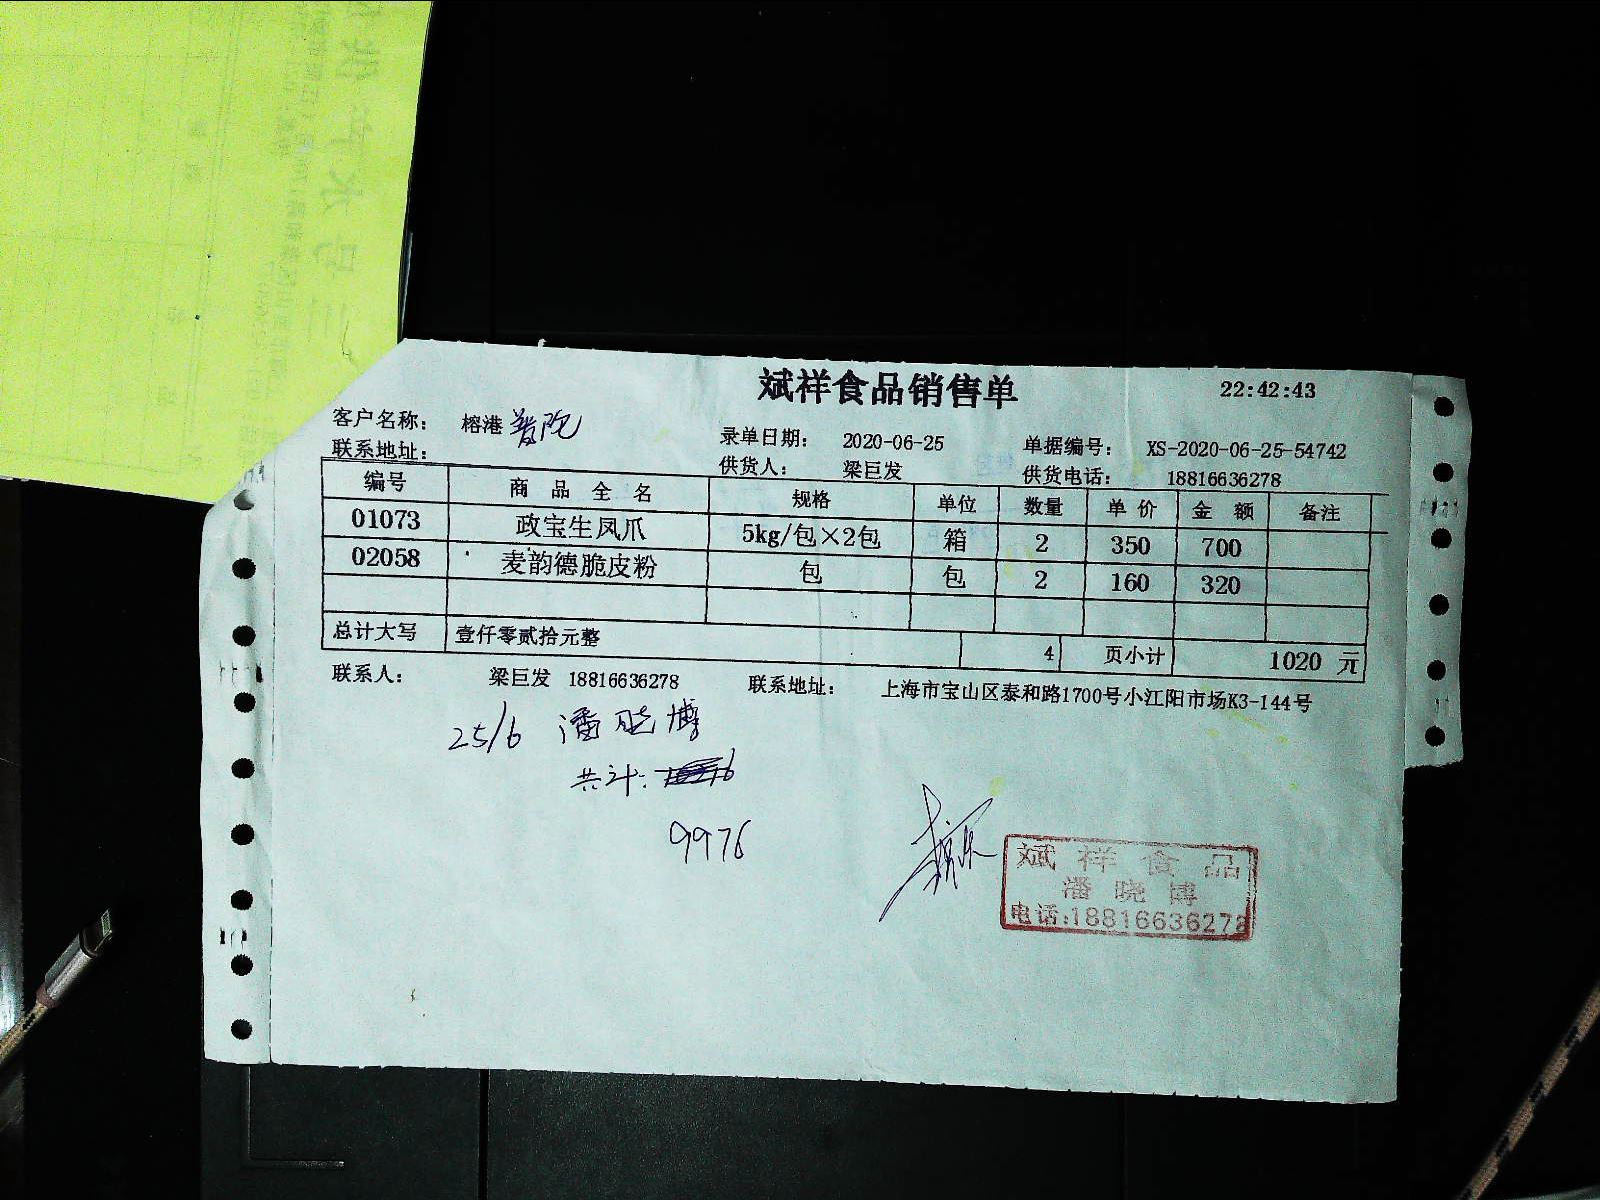 斌祥食品销售单
22:42:43
客户名称： 榕港 普陀
录单日期： 2020-06-25
单据编号： XS-2020-06-25-54742
联系地址：
供货人： 梁巨发
供货电话： 18816636278
编号 商品全名 规格 单位 数量 单价 金额 备注
01073 政宝生凤爪 5kg/包×2包 箱 2 350 700
02058 麦韵德脆皮粉 包 包 2 160 320
总计大写 壹仟零贰拾元整 4 页小计 1020 元
联系人： 梁巨发 18816636278 联系地址： 上海市宝山区泰和路1700号小江阳市场K3-144号
25/6 潘晓博
共计：
9976
斌祥食品
潘晓博
电话:18816636278